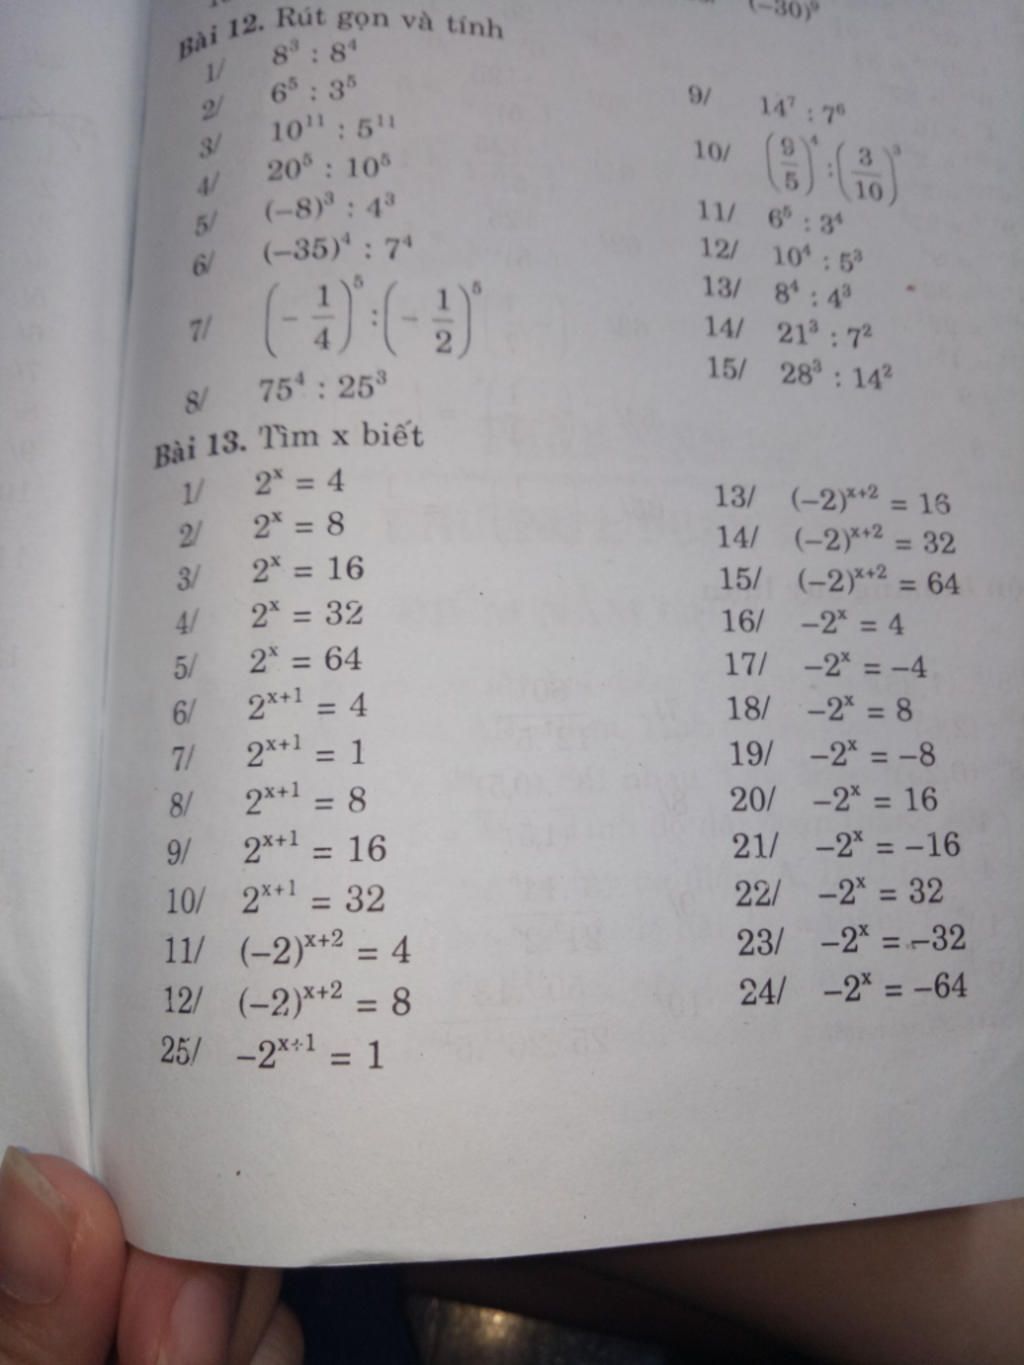 (−30)⁹
Bài 12. Rút gọn và tính
1/ 8³ : 8⁴
2/ 6⁵ : 3⁵
3/ 10¹¹ : 5¹¹
4/ 20⁵ : 10⁵
5/ (−8)³ : 4³
6/ (−35)⁴ : 7⁴
7/ (−1/4)⁵ : (−1/2)⁵
8/ 75⁴ : 25³
9/ 14⁷ : 7⁶
10/ (9/5)⁴ : (3/10)³
11/ 6⁵ : 3⁴
12/ 10⁴ : 5³
13/ 8⁴ : 4³
14/ 21³ : 7²
15/ 28³ : 14²
Bài 13. Tìm x biết
1/ 2ˣ = 4
2/ 2ˣ = 8
3/ 2ˣ = 16
4/ 2ˣ = 32
5/ 2ˣ = 64
6/ 2ˣ⁺¹ = 4
7/ 2ˣ⁺¹ = 1
8/ 2ˣ⁺¹ = 8
9/ 2ˣ⁺¹ = 16
10/ 2ˣ⁺¹ = 32
11/ (−2)ˣ⁺² = 4
12/ (−2)ˣ⁺² = 8
25/ −2ˣ⁺¹ = 1
13/ (−2)ˣ⁺² = 16
14/ (−2)ˣ⁺² = 32
15/ (−2)ˣ⁺² = 64
16/ −2ˣ = 4
17/ −2ˣ = −4
18/ −2ˣ = 8
19/ −2ˣ = −8
20/ −2ˣ = 16
21/ −2ˣ = −16
22/ −2ˣ = 32
23/ −2ˣ = −32
24/ −2ˣ = −64